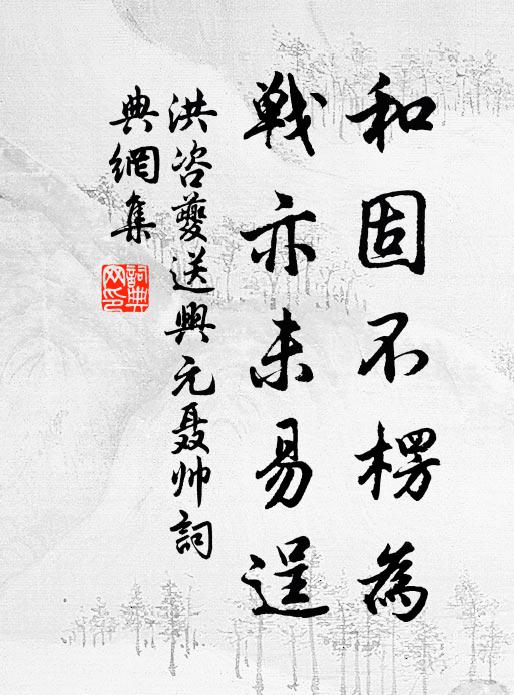 和固不楞為
戰亦未易逞
洪咨夔送興元聂帅詞
典網集
詞典網印